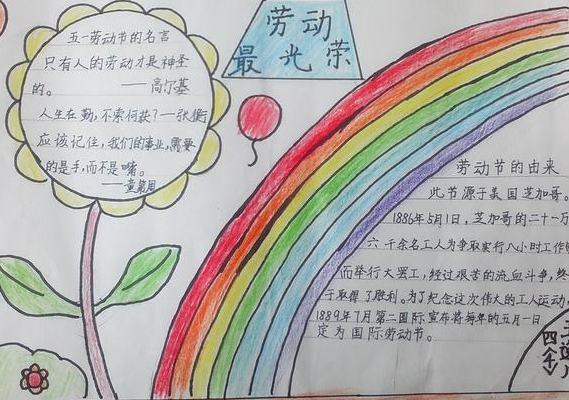 五一劳动节的名言
只有人的劳动才是神圣
的。——高尔基
人生在勤，不索何获？—张衡
应该记住，我们的事业，需要
的是手，而不是嘴。
——童第周
劳动
最光荣
劳动节的由来
此节源于美国芝加哥。
1886年5月1日，芝加哥的二十一万
六千余名工人为争取实行八小时工作
而举行大罢工，经过艰苦的流血斗争，终
于取得了胜利。为了纪念这次伟大的工人运动，
1889年7月第二国际宣布将每年的五月一日
定为国际劳动节。